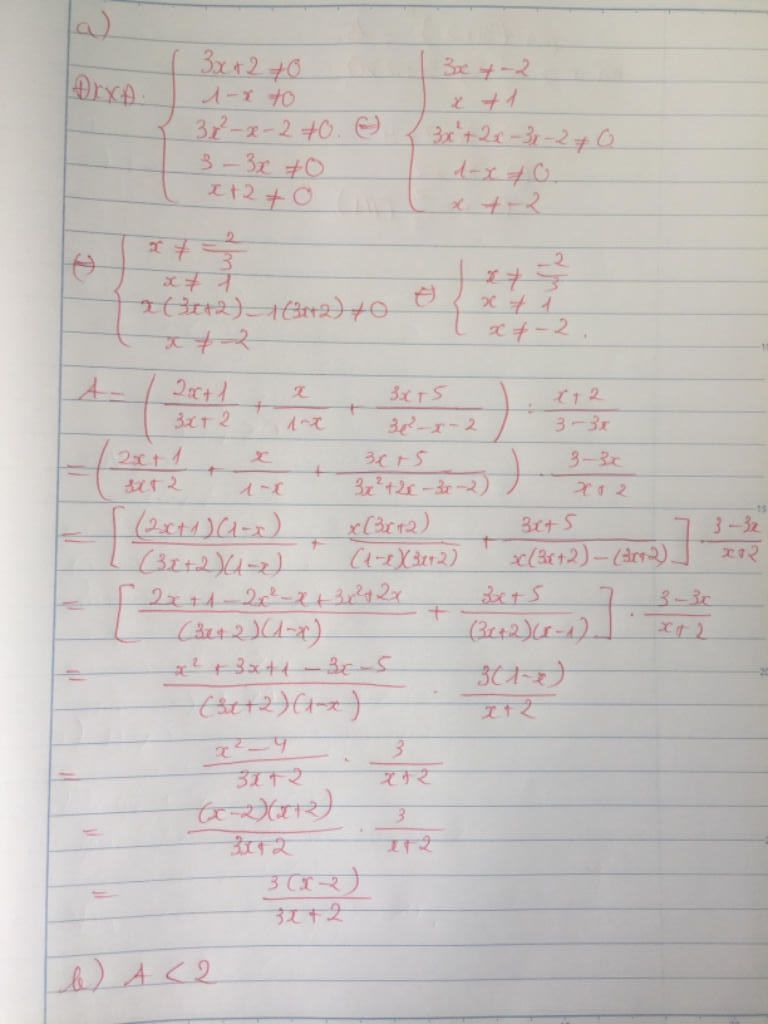 a)
ĐKXĐ. { 3x+2 ≠ 0 ; 1-x ≠ 0 ; 3x²-x-2 ≠ 0. ; 3-3x ≠ 0 ; x+2 ≠ 0 (=) { 3x ≠ -2 ; x ≠ 1 ; 3x²+2x-3x-2 ≠ 0 ; 1-x ≠ 0. ; x ≠ -2
(=) { x ≠ -2/3 ; x ≠ 1 ; x(3x+2)-1(3x+2) ≠ 0 ; x ≠ -2 (=) { x ≠ -2/3 ; x ≠ 1 ; x ≠ -2.
A = ( (2x+1)/(3x+2) + x/(1-x) + (3x+5)/(3x²-x-2) ) : (x+2)/(3-3x)
= ( (2x+1)/(3x+2) + x/(1-x) + (3x+5)/(3x²+2x-3x-2) ) ) . (3-3x)/(x+2)
= [ (2x+1)(1-x)/(3x+2)(1-x) + x(3x+2)/(1-x)(3x+2) + (3x+5)/(x(3x+2)-(3x+2)) ] . (3-3x)/(x+2)
= [ (2x+1-2x²-x+3x²+2x)/(3x+2)(1-x) + (3x+5)/(3x+2)(x-1) ] . (3-3x)/(x+2)
= (x²+3x+1-3x-5)/(3x+2)(1-x) . 3(1-x)/(x+2)
= (x²-4)/(3x+2) . 3/(x+2)
= (x-2)(x+2)/(3x+2) . 3/(x+2)
= 3(x-2)/(3x+2)
b) A < 2